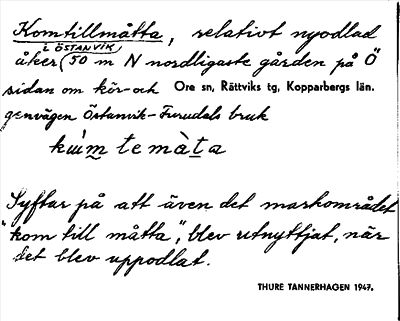 Komtillmåtta, relativt nyodlad
i ÖSTANVIK
åker (50 m N nordligaste gården på Ö
sidan om kör- och Ore sn, Rättviks tg, Kopparbergs län.
genvägen Östanvik-Furudals bruk
temàta
Syftar på att även det markområdet
"kom till måtta", blev utnyttjat, när
det blev uppodlat.
THURE TANNERHAGEN 1947.